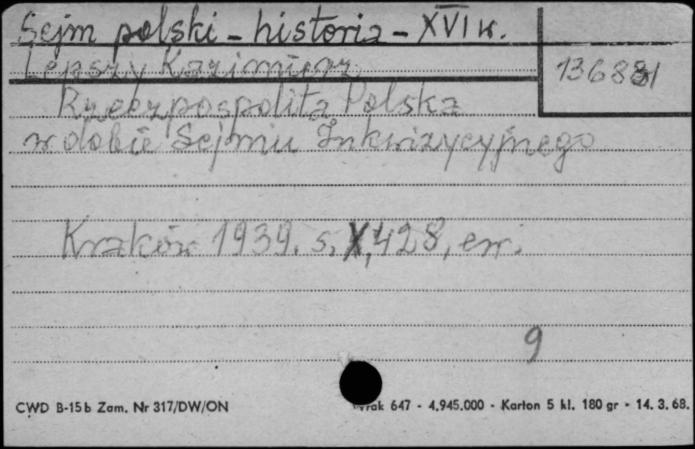 Sejm polski - historia - XVI w.
Lepszy Kazimierz
Rzeczpospolita Polska
w dobie Sejmu Inkwizycyjnego
Kraków 1939. s. X, 428, err.
9
CWD B-15b Zam. Nr 317/DW/ON
647 - 4.945.000 - Karton 5 kl. 180 gr - 14. 3. 68.